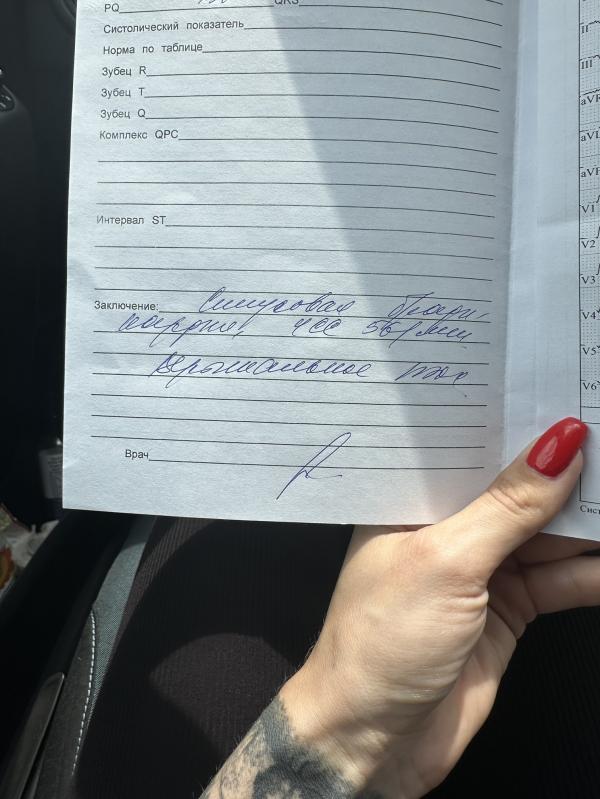 PQ QRS
Систолический показатель
Норма по таблице
Зубец R
Зубец T
Зубец Q
Комплекс QPC
Интервал ST
Заключение: Синусовая бради-
кардия, ЧСС 56/мин
Вертикальное пол
Врач
II
III
aVR
aVL
aVF
V1
V2
V3
V4
V5
V6
Сист